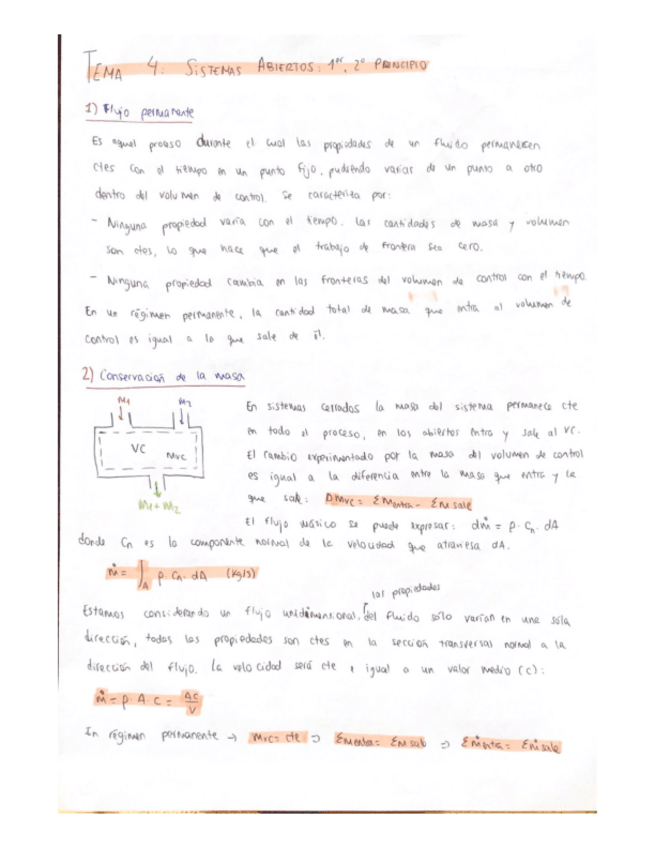 TEMA 4: SISTEMAS ABIERTOS: 1er, 2º PRINCIPIO
1) Flujo permanente
Es aquel proceso durante el cual las propiedades de un fluido permanecen
ctes con el tiempo en un punto fijo, pudiendo variar de un punto a otro
dentro del volumen de control. Se caracteriza por:
- Ninguna propiedad varía con el tiempo. Las cantidades de masa y volumen
son ctes, lo que hace que el trabajo de frontera sea cero.
- Ninguna propiedad cambia en las fronteras del volumen de control con el tiempo.
En un régimen permanente, la cantidad total de masa que entra al volumen de
control es igual a la que sale de él.
2) Conservación de la masa
m1 m2
VC mvc
m1+m2
En sistemas cerrados la masa del sistema permanece cte
en todo el proceso, en los abiertos entra y sale al VC.
El cambio experimentado por la masa del volumen de control
es igual a la diferencia entre la masa que entra y la
que sale: Δmvc = Σmentra - Σm sale
El flujo másico se puede expresar: dṁ = ρ · Cn · dA
donde Cn es la componente normal de la velocidad que atraviesa dA.
ṁ = ∫A ρ Cn · dA (kg/s)
las propiedades
Estamos considerando un flujo unidimensional, del fluido sólo varían en una sola
dirección, todas las propiedades son ctes en la sección transversal normal a la
dirección del flujo. La velocidad será cte e igual a un valor medio (c):
ṁ = ρ · A · c = Ac/v
En régimen permanente → mvc = cte ⇒ Σmentra = Σm sale ⇒ Σṁentra = Σṁsale